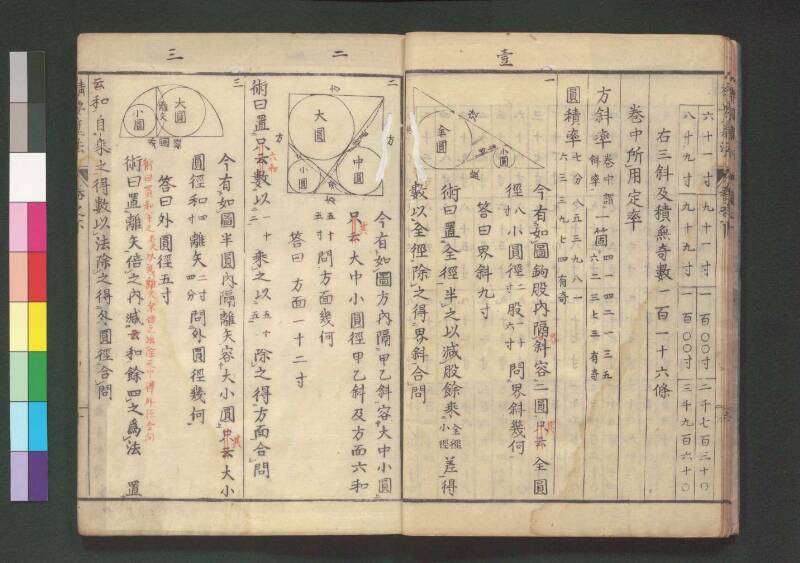 六十一寸 九十一寸 一百〇〇寸 二千七百三十〇
八十九寸 九十九寸 一百〇〇寸 三千九百六十〇
右三斜及積無奇數一百一十六條
巻中所用定率
方斜率
一箇四一一四二一三五
六二三七三有奇
圓積率
七分八五三九八一
六三三九七四有奇
壹
一
全圓
小圓
今有如圖鉤股内隔斜容二圓只云全圓
徑八寸小圓徑二寸股一十六寸問界斜幾何
答曰界斜九寸
術曰置全徑半之以減股餘乘全徑小徑差得
數以全徑除之得界斜合問
二
二
大圓
中圓
小圓
方
今有如圖方内隔甲乙斜容大中小圓
只云大中小圓徑甲乙斜及方面六和
五十五寸問方面幾何
答曰方面一十二寸
術曰置只云數以一十二乘之以五十五除之得方面合問
六和
三
三
大圓
小圓
離矢
今有如圖半圓内隔離矢容大小圓只云大小
圓徑和四寸離矢二寸四分問外圓徑幾何
答曰外圓徑五寸
術曰置離矢倍之内減云和餘四之爲法置
云和自乘之得數以法除之得外圓徑合問